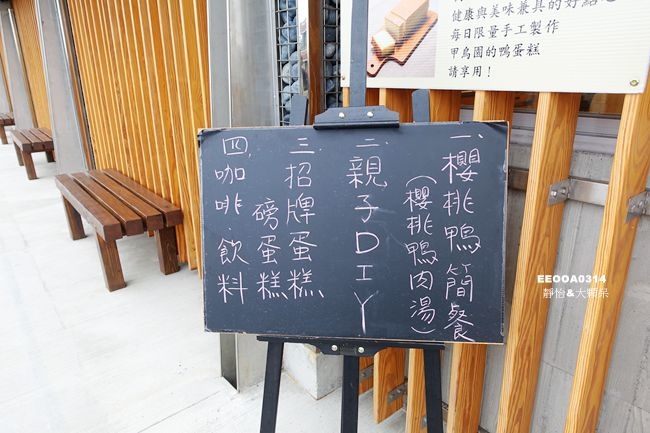 健康與美味兼具的好點心
每日限量手工製作
甲鳥園的鴨蛋糕
請享用！
一、櫻桃鴨簡餐
（櫻桃鴨肉湯）
二、親子DIY
三、招牌蛋糕
磅蛋糕
四、咖啡.飲料
EEOOA0314
靜怡&大顆呆